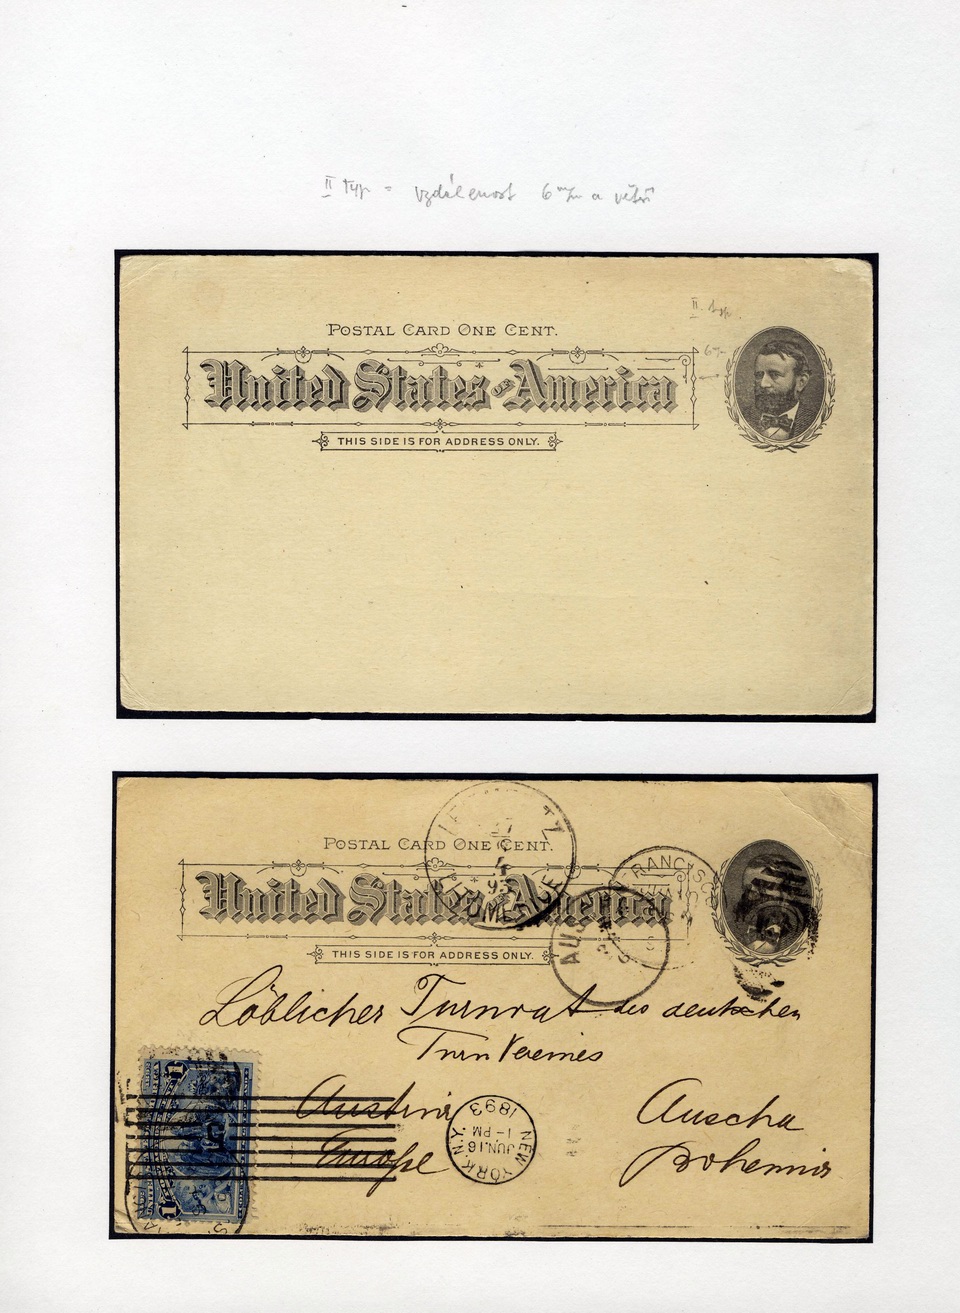 II typ = vzdálenost 6 m/m a větší
II. typ.
POSTAL CARD ONE CENT.
United States of America
THIS SIDE IS FOR ADDRESS ONLY.
POSTAL CARD ONE CENT.
United States America
THIS SIDE IS FOR ADDRESS ONLY.
FRANCISCO
Löblicher Turnrat des deutschen
Turn Vereines
Austria Auscha
Europe Bohemia
NEW YORK, N.Y.
JUN.16
1-PM
1893